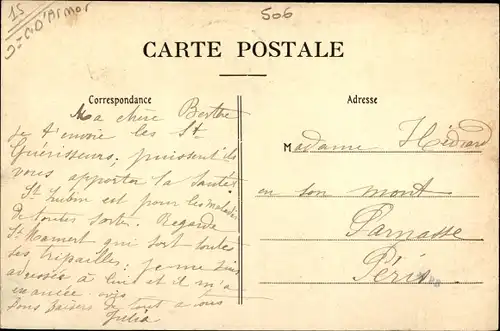 15
D=C. D'Armor
506
CARTE POSTALE
Correspondance
Ma chère Berthe
je t'envoie les St
Guérisseurs, puissent ils
vous apporter la Santé!
St est pour les maladies
de toutes sortes. Regarde
St Mamert qui sort toutes
ses tripailles; je me suis
adressée à lui et il m'a
exaucée.
bons baisers de tout à vous
Julia
Adresse
Madame Hédiard
en son mont
Parnasse
Péris